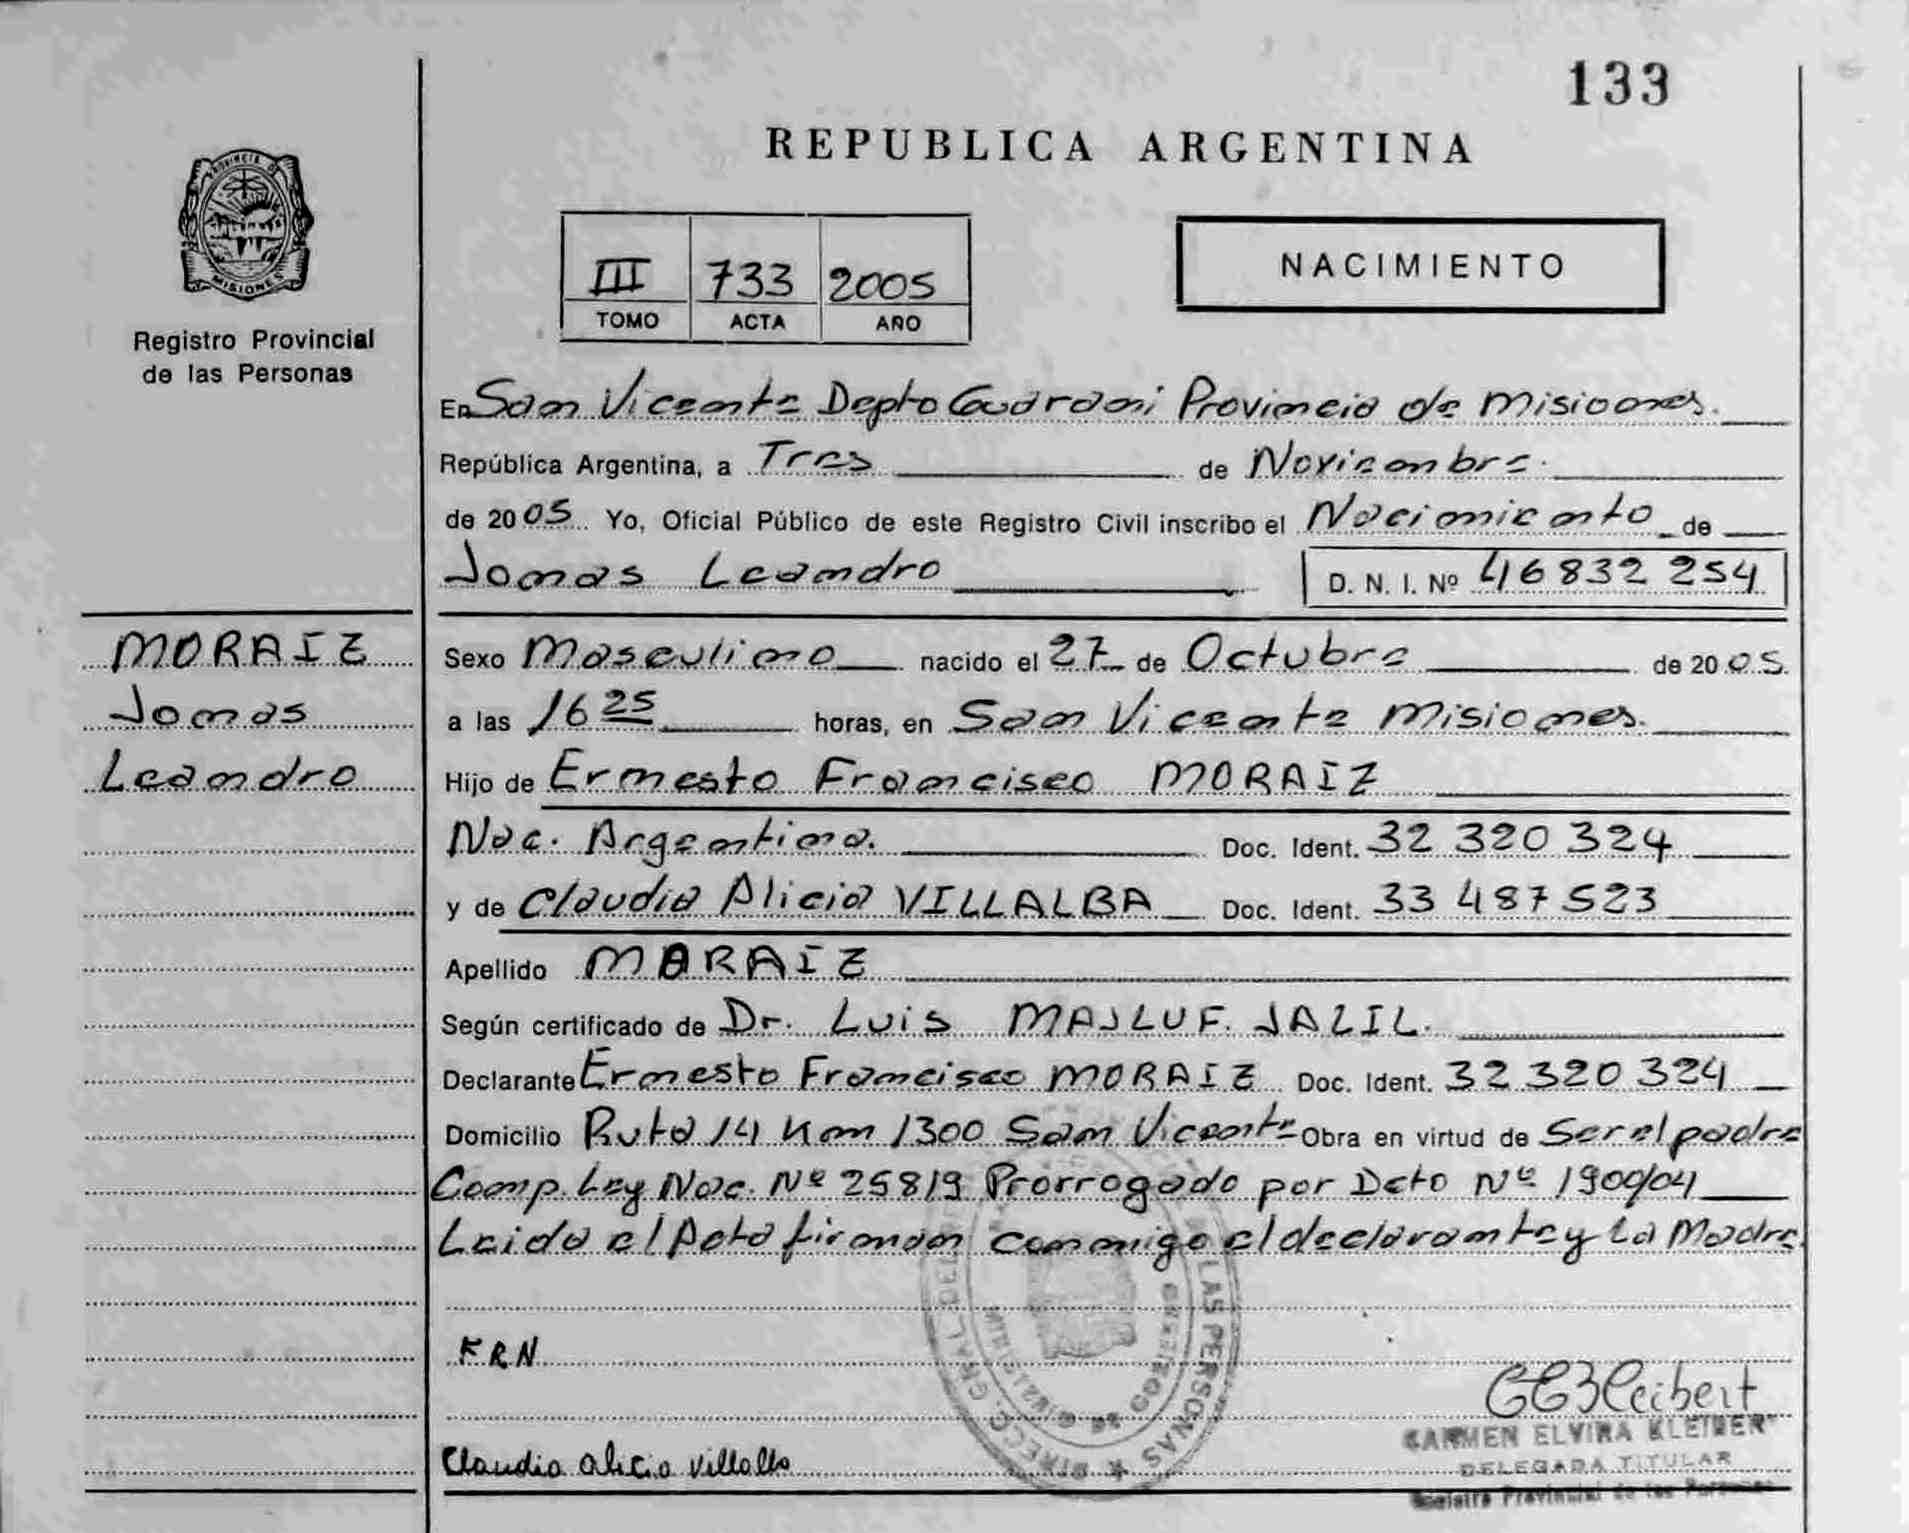 133
REPUBLICA ARGENTINA
PROVINCIA DE
MISIONES
Registro Provincial
de las Personas
III 733 2005
TOMO ACTA AÑO
NACIMIENTO
En San Vicente Depto Guarani Provincia de Misiones.
República Argentina, a Tres de Noviembre.
de 2005 Yo, Oficial Público de este Registro Civil inscribo el Nacimiento de
Jonas Leandro D. N. I. Nº 46832 254
MORAIZ
Jonas
Leandro
Sexo Masculino nacido el 27 de Octubre de 2005.
a las 16 25 horas, en San Vicente Misiones.
Hijo de Ernesto Francisco MORAIZ
Nac. Argentina. Doc. Ident. 32 320 324
y de Claudia Alicia VILLALBA Doc. Ident. 33 487 523
Apellido MORAIZ
Según certificado de Dr. Luis MAJLUF JALIL.
Declarante Ernesto Francisco MORAIZ Doc. Ident. 32 320 324
Domicilio Ruta 14 Km 1300 San Vicente Obra en virtud de Ser el padre
Comp. Ley Nac. Nº 25819 Prorrogado por Dcto Nº 1900/04
Leida el Acta firman conmigo el declarante y La Madre.
FRN
Claudia alicia villalba
CARMEN ELVIRA KLEIBERT
DELEGADA TITULAR
Registro Provincial de las Personas